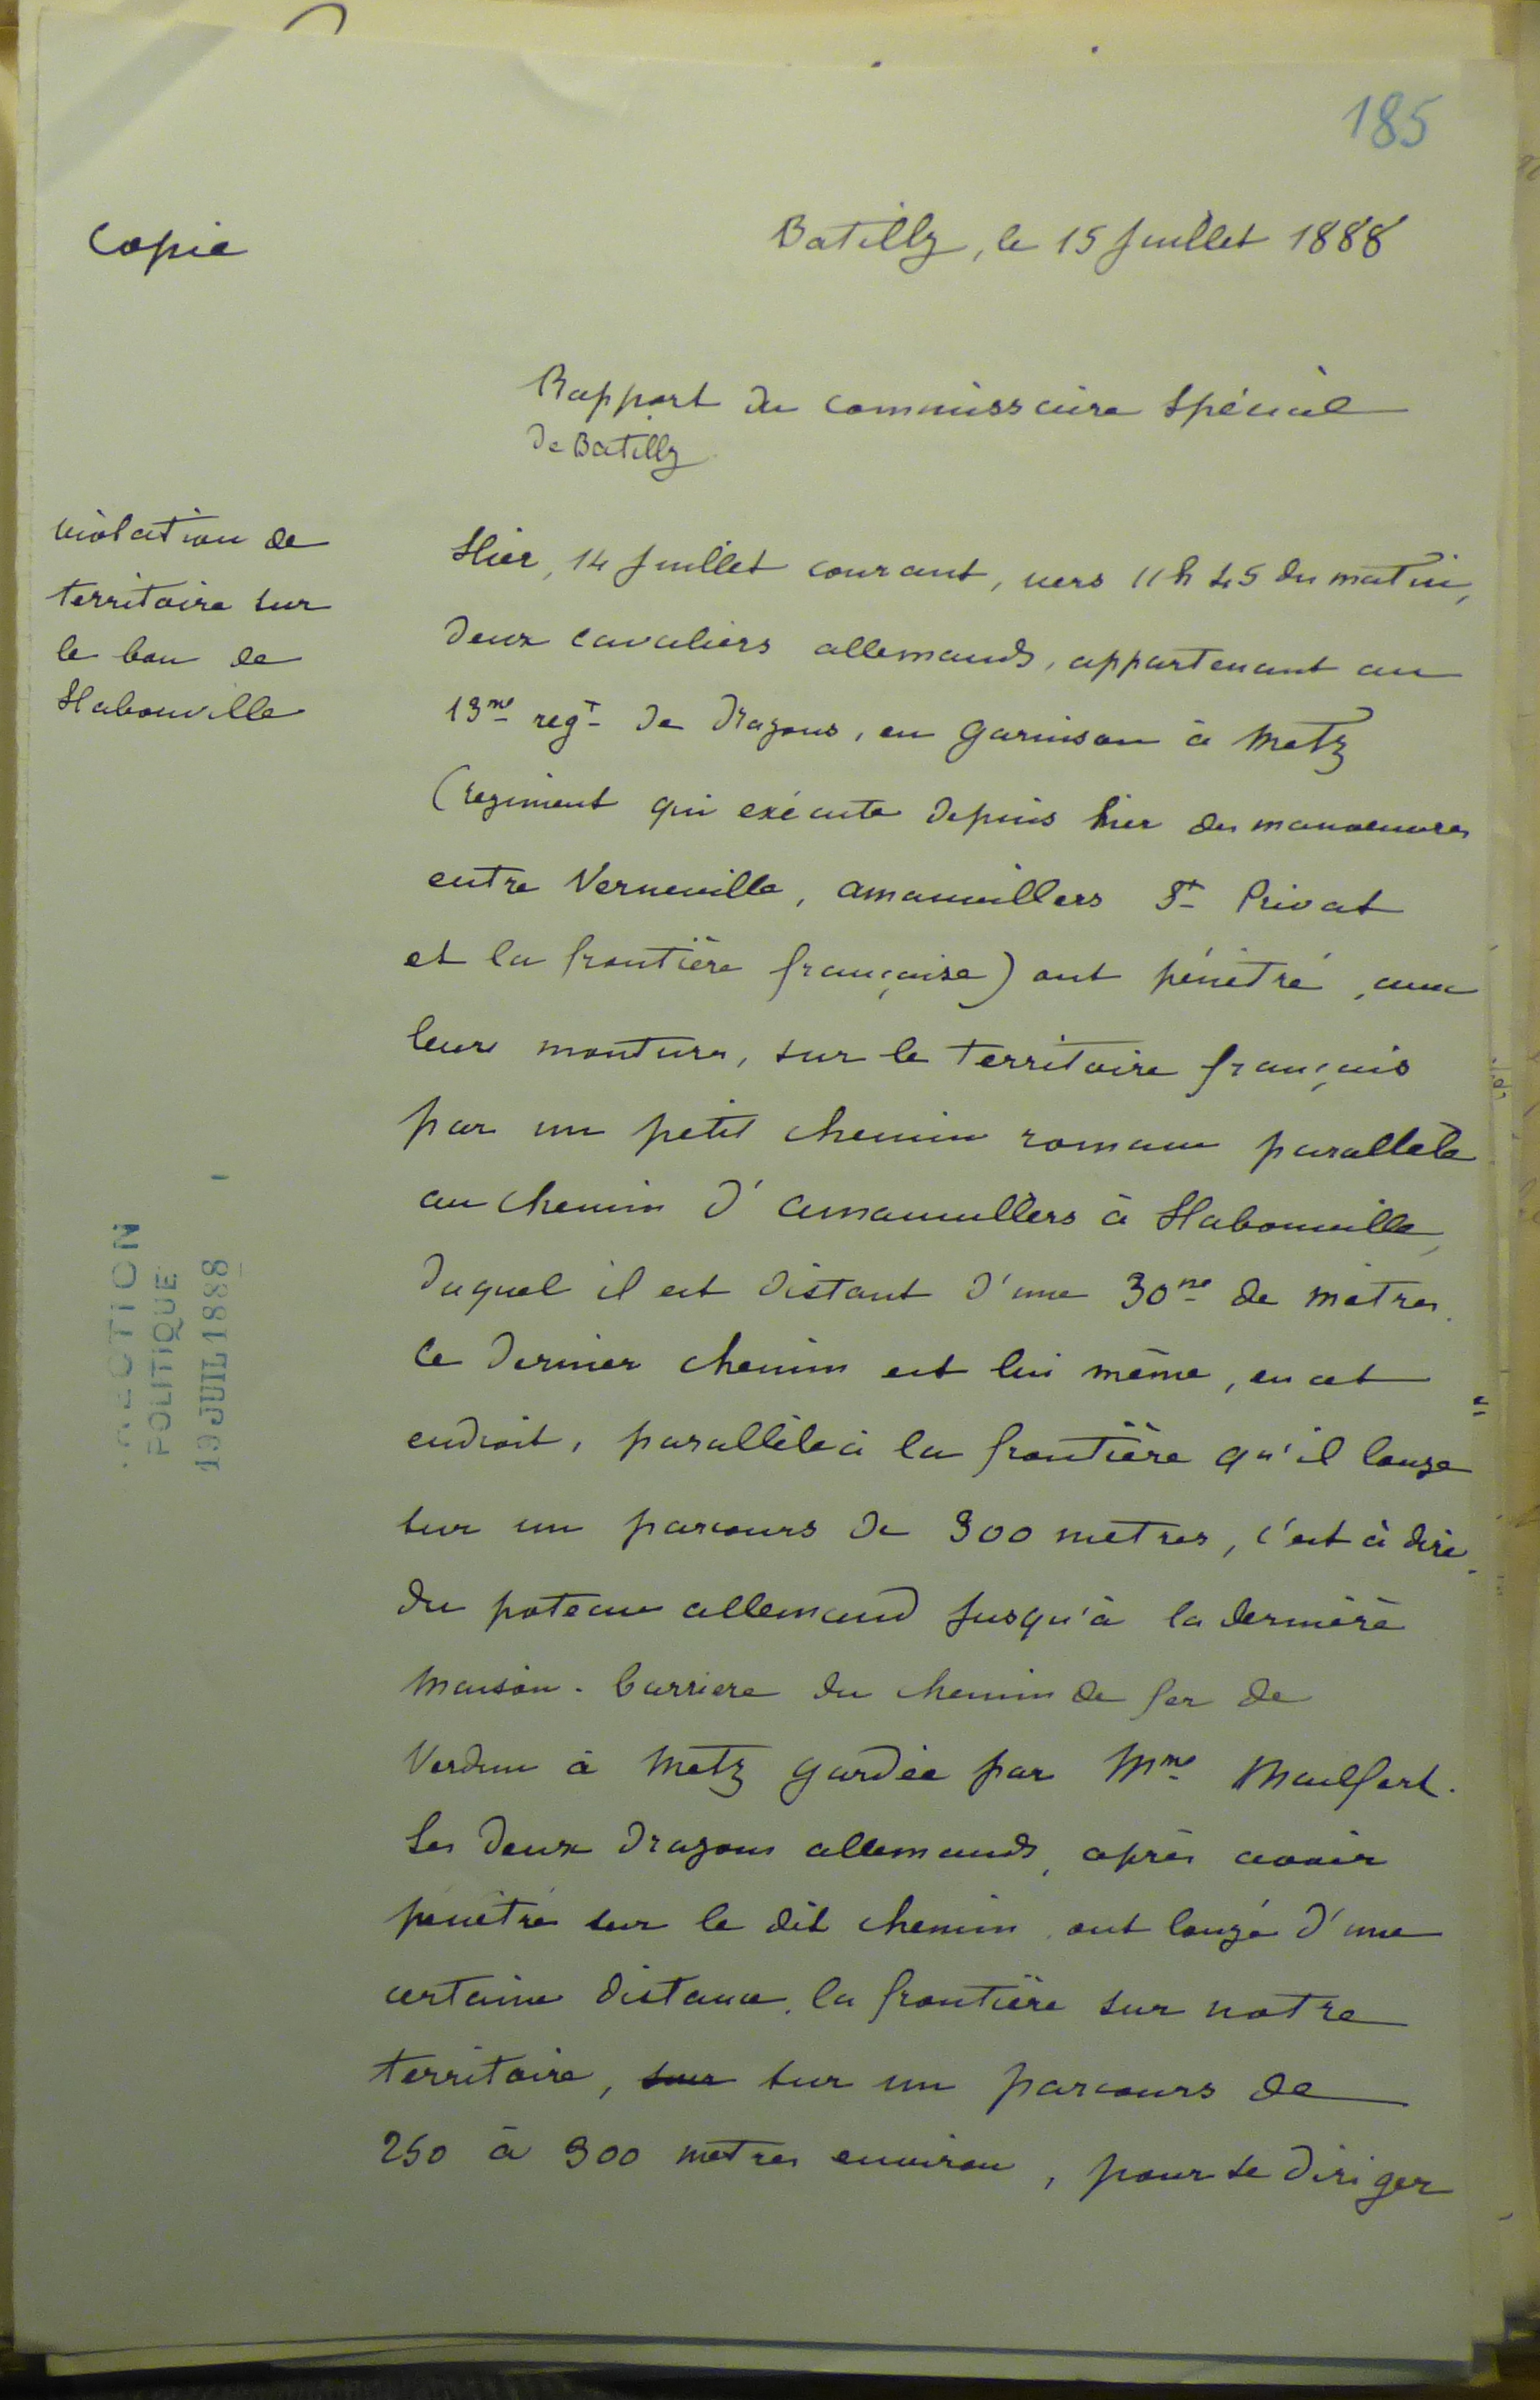 185
Copie
Batilly, le 15 Juillet 1888
Rapport du commissaire spécial
de Batilly
violation de
territoire sur
le ban de
Habonville
Hier, 14 Juillet courant, vers 11h 45 du matin,
deux cavaliers allemands, appartenant au
13me regt de dragons, en garnison à Metz
(regiment qui exécute depuis hier des manoeuvres
entre Verneville, Amanvillers St Privat
et la frontière française) ont pénétré, avec
leurs montures, sur le territoire français
par un petit chemin romain parallèle
au chemin d'Amanvillers à Habonville,
duquel il est distant d'une 30ne de mètres.
Ce dernier chemin est lui même, en cet
endroit, parallèle à la frontière qu'il longe
sur un parcours de 300 metres, c'est à dire
du poteau allemand jusqu'à la dernière
maison-barriere du chemin de fer de
Verdun à Metz gardée par Mme Mailfert.
Les deux dragons allemands, après avoir
pénétré sur le dit chemin, ont longé d'une
certaine distance, la frontière sur notre
territoire, sur sur un parcours de
250 à 300 metres environ, pour se diriger
POLITIQUE
19 JUIL 1888